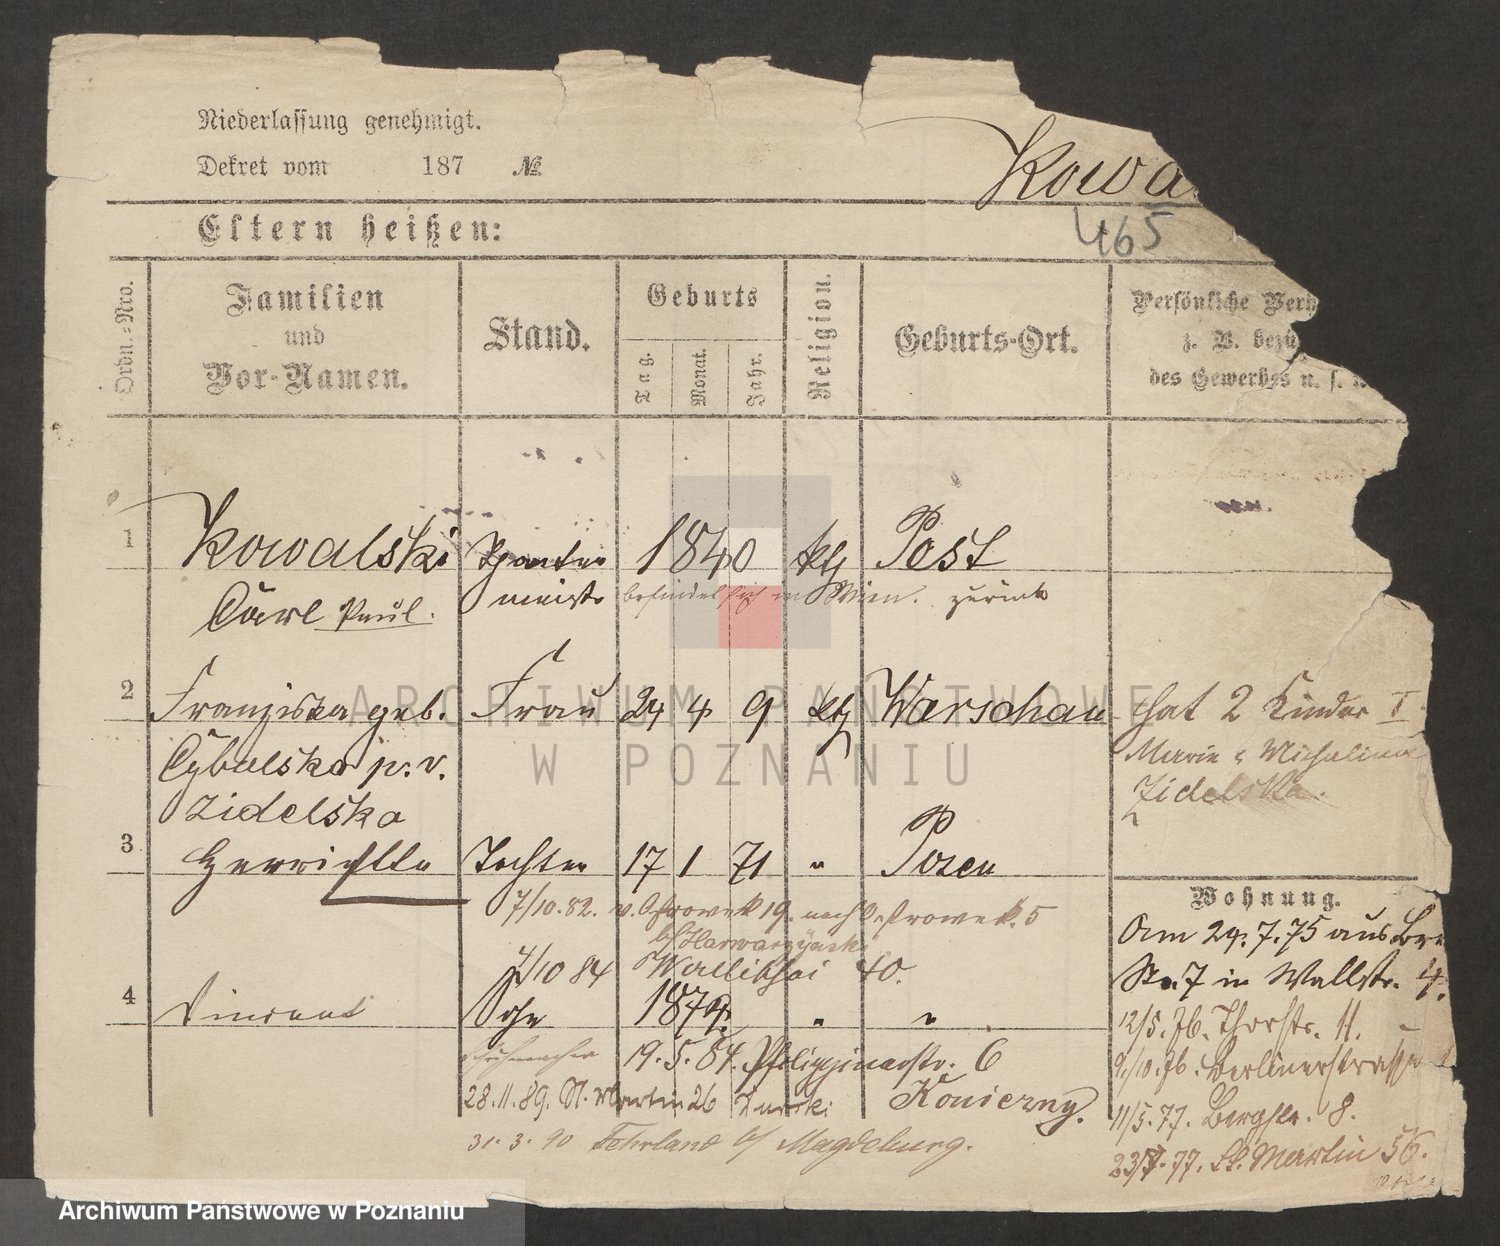 Niederlassung genehmigt.
Dekret vom 187 №
Kowa
465
Eltern heißen:
Ordn.-Nro.
Familien
und
Vor-Namen.
Stand.
Geburts
Tag.
Monat.
Jahr.
Religion.
Geburts-Ort.
Persönliche Verh
z. B. bezü
des Gewerbes u. s. w.
1 Kowalski 1840 ktl Pest
Carl Paul. befindet sich in Wien. zurück
2 Franziska geb. Frau 24 4 9 ktl Warschau hat 2 Kinder I
Cybulska p. v. Marie & Michalina
Zidelska Zidelska.
3 Tochter 17 1 71 " Posen
Wohnung.
7/10.82. v. Ostrowek 19. nach Ostrowek. 5
Am 29.7.75 aus
7/10 84 Wallischei 40.
in Wallstr. 4.
4 Vincent Sohn 1874. " "
12/5. 76. Thorstr. 11.
19.5.84. Philippinerstr. 6
9./10. 76. Berlinerstrasse
28.11.89. St. Martin 26 Konierny.
11/5.77. Bergstr. 8.
31.3.90 Fehrland b/ Magdeburg.
23/7.77. St. Martin 56.
ARCHIWUM PAŃSTWOWE
W POZNANIU
Archiwum Państwowe w Poznaniu